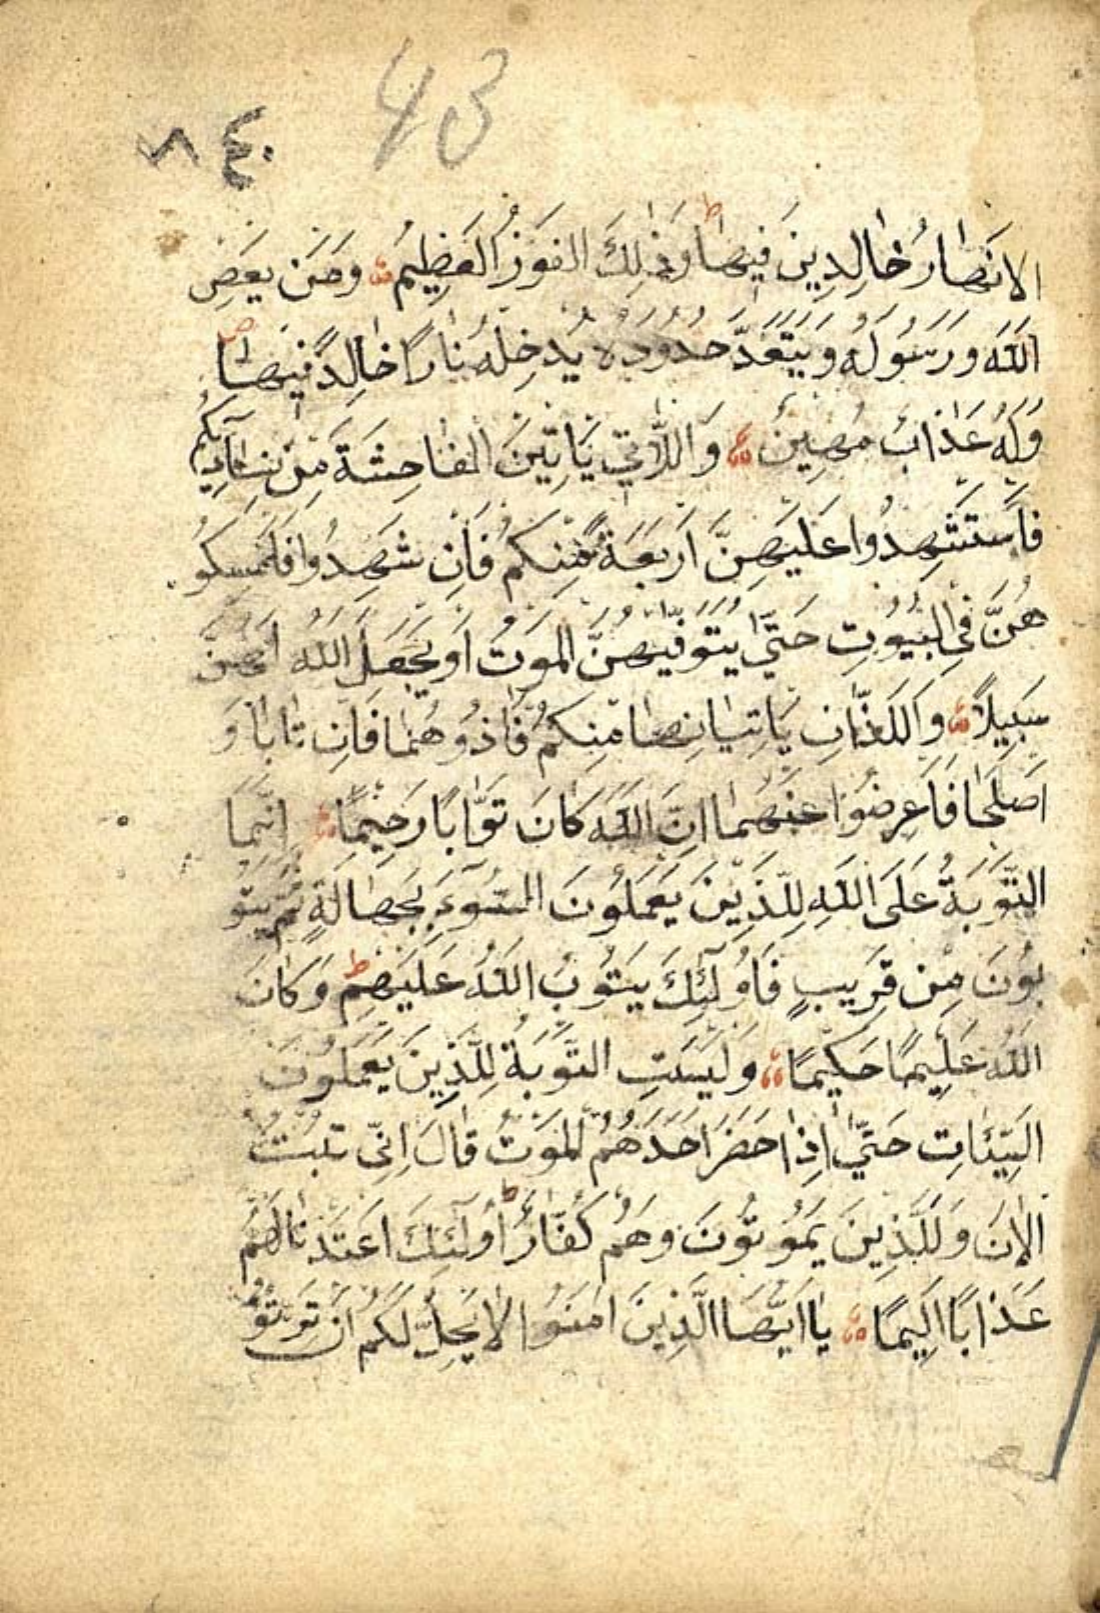 43
٤٠ ٨
الانهار خالدين فيها وذلك الفوز العظيم ومن يعص
الله ورسوله ويتعد حدوده يدخله نارا خالدا فيها
وله عذاب مهين واللاتي ياتين الفاحشة من نسائكم
فاستشهدوا عليهن اربعة منكم فان شهدوا فامسكو
هن في البيوت حتى يتوفيهن الموت او يجعل الله لهن
سبيلا واللذان ياتيانها منكم فاذوهما فان تابا و
اصلحا فاعرضوا عنهما ان الله كان توابا رحيما انما
التوبة على الله للذين يعملون السوء بجهالة ثم يتو
بون من قريب فاولئك يتوب الله عليهم وكان
الله عليما حكيما وليست التوبة للذين يعملون
السيئات حتى اذا حضر احدهم الموت قال اني تبت
الان وللذين يموتون وهم كفار اولئك اعتدنا لهم
عذابا اليما يا ايها الذين امنوا لا يحل لكم ان ترثوا